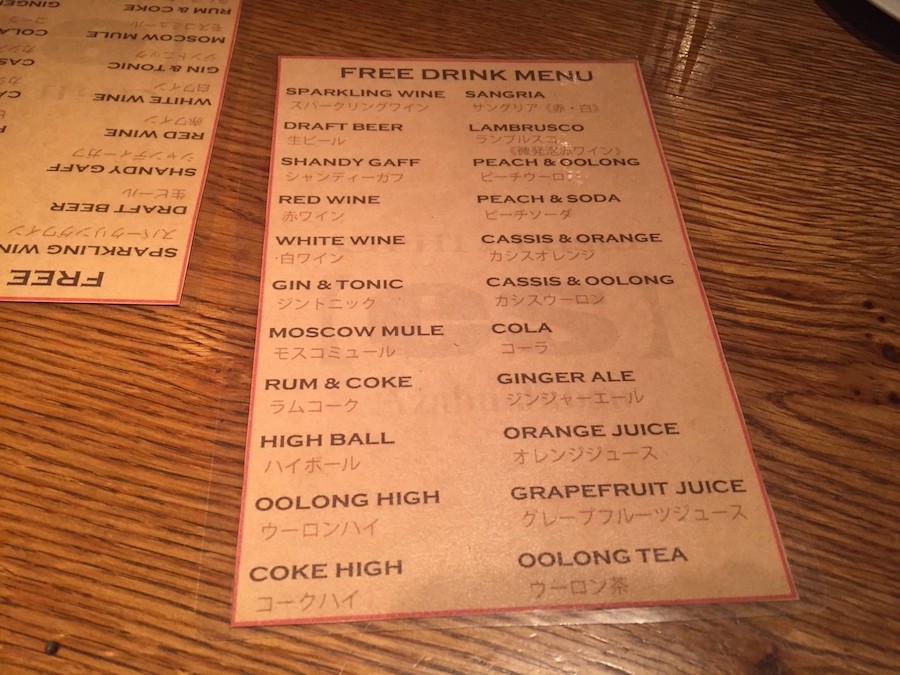 FREE DRINK MENU
SPARKLING WINE
スパークリングワイン
DRAFT BEER
生ビール
SHANDY GAFF
シャンディーガフ
RED WINE
赤ワイン
WHITE WINE
白ワイン
GIN & TONIC
ジントニック
MOSCOW MULE
モスコミュール
RUM & COKE
ラムコーク
HIGH BALL
ハイボール
OOLONG HIGH
ウーロンハイ
COKE HIGH
コークハイ
SANGRIA
サングリア《赤・白》
LAMBRUSCO
ランブルスコ
《微発泡赤ワイン》
PEACH & OOLONG
ピーチウーロン
PEACH & SODA
ピーチソーダ
CASSIS & ORANGE
カシスオレンジ
CASSIS & OOLONG
カシスウーロン
COLA
コーラ
GINGER ALE
ジンジャーエール
ORANGE JUICE
オレンジジュース
GRAPEFRUIT JUICE
グレープフルーツジュース
OOLONG TEA
ウーロン茶
FREE
SPARKLING WIN
スパークリングワイン
DRAFT BEER
生ビール
SHANDY GAFF
シャンディーガフ
RED WINE
赤ワイン
WHITE WINE
白ワイン
GIN & TONIC
ジントニック
MOSCOW MULE
モスコミュール
RUM & COKE
CAS
COLA
コーラ
GINGER